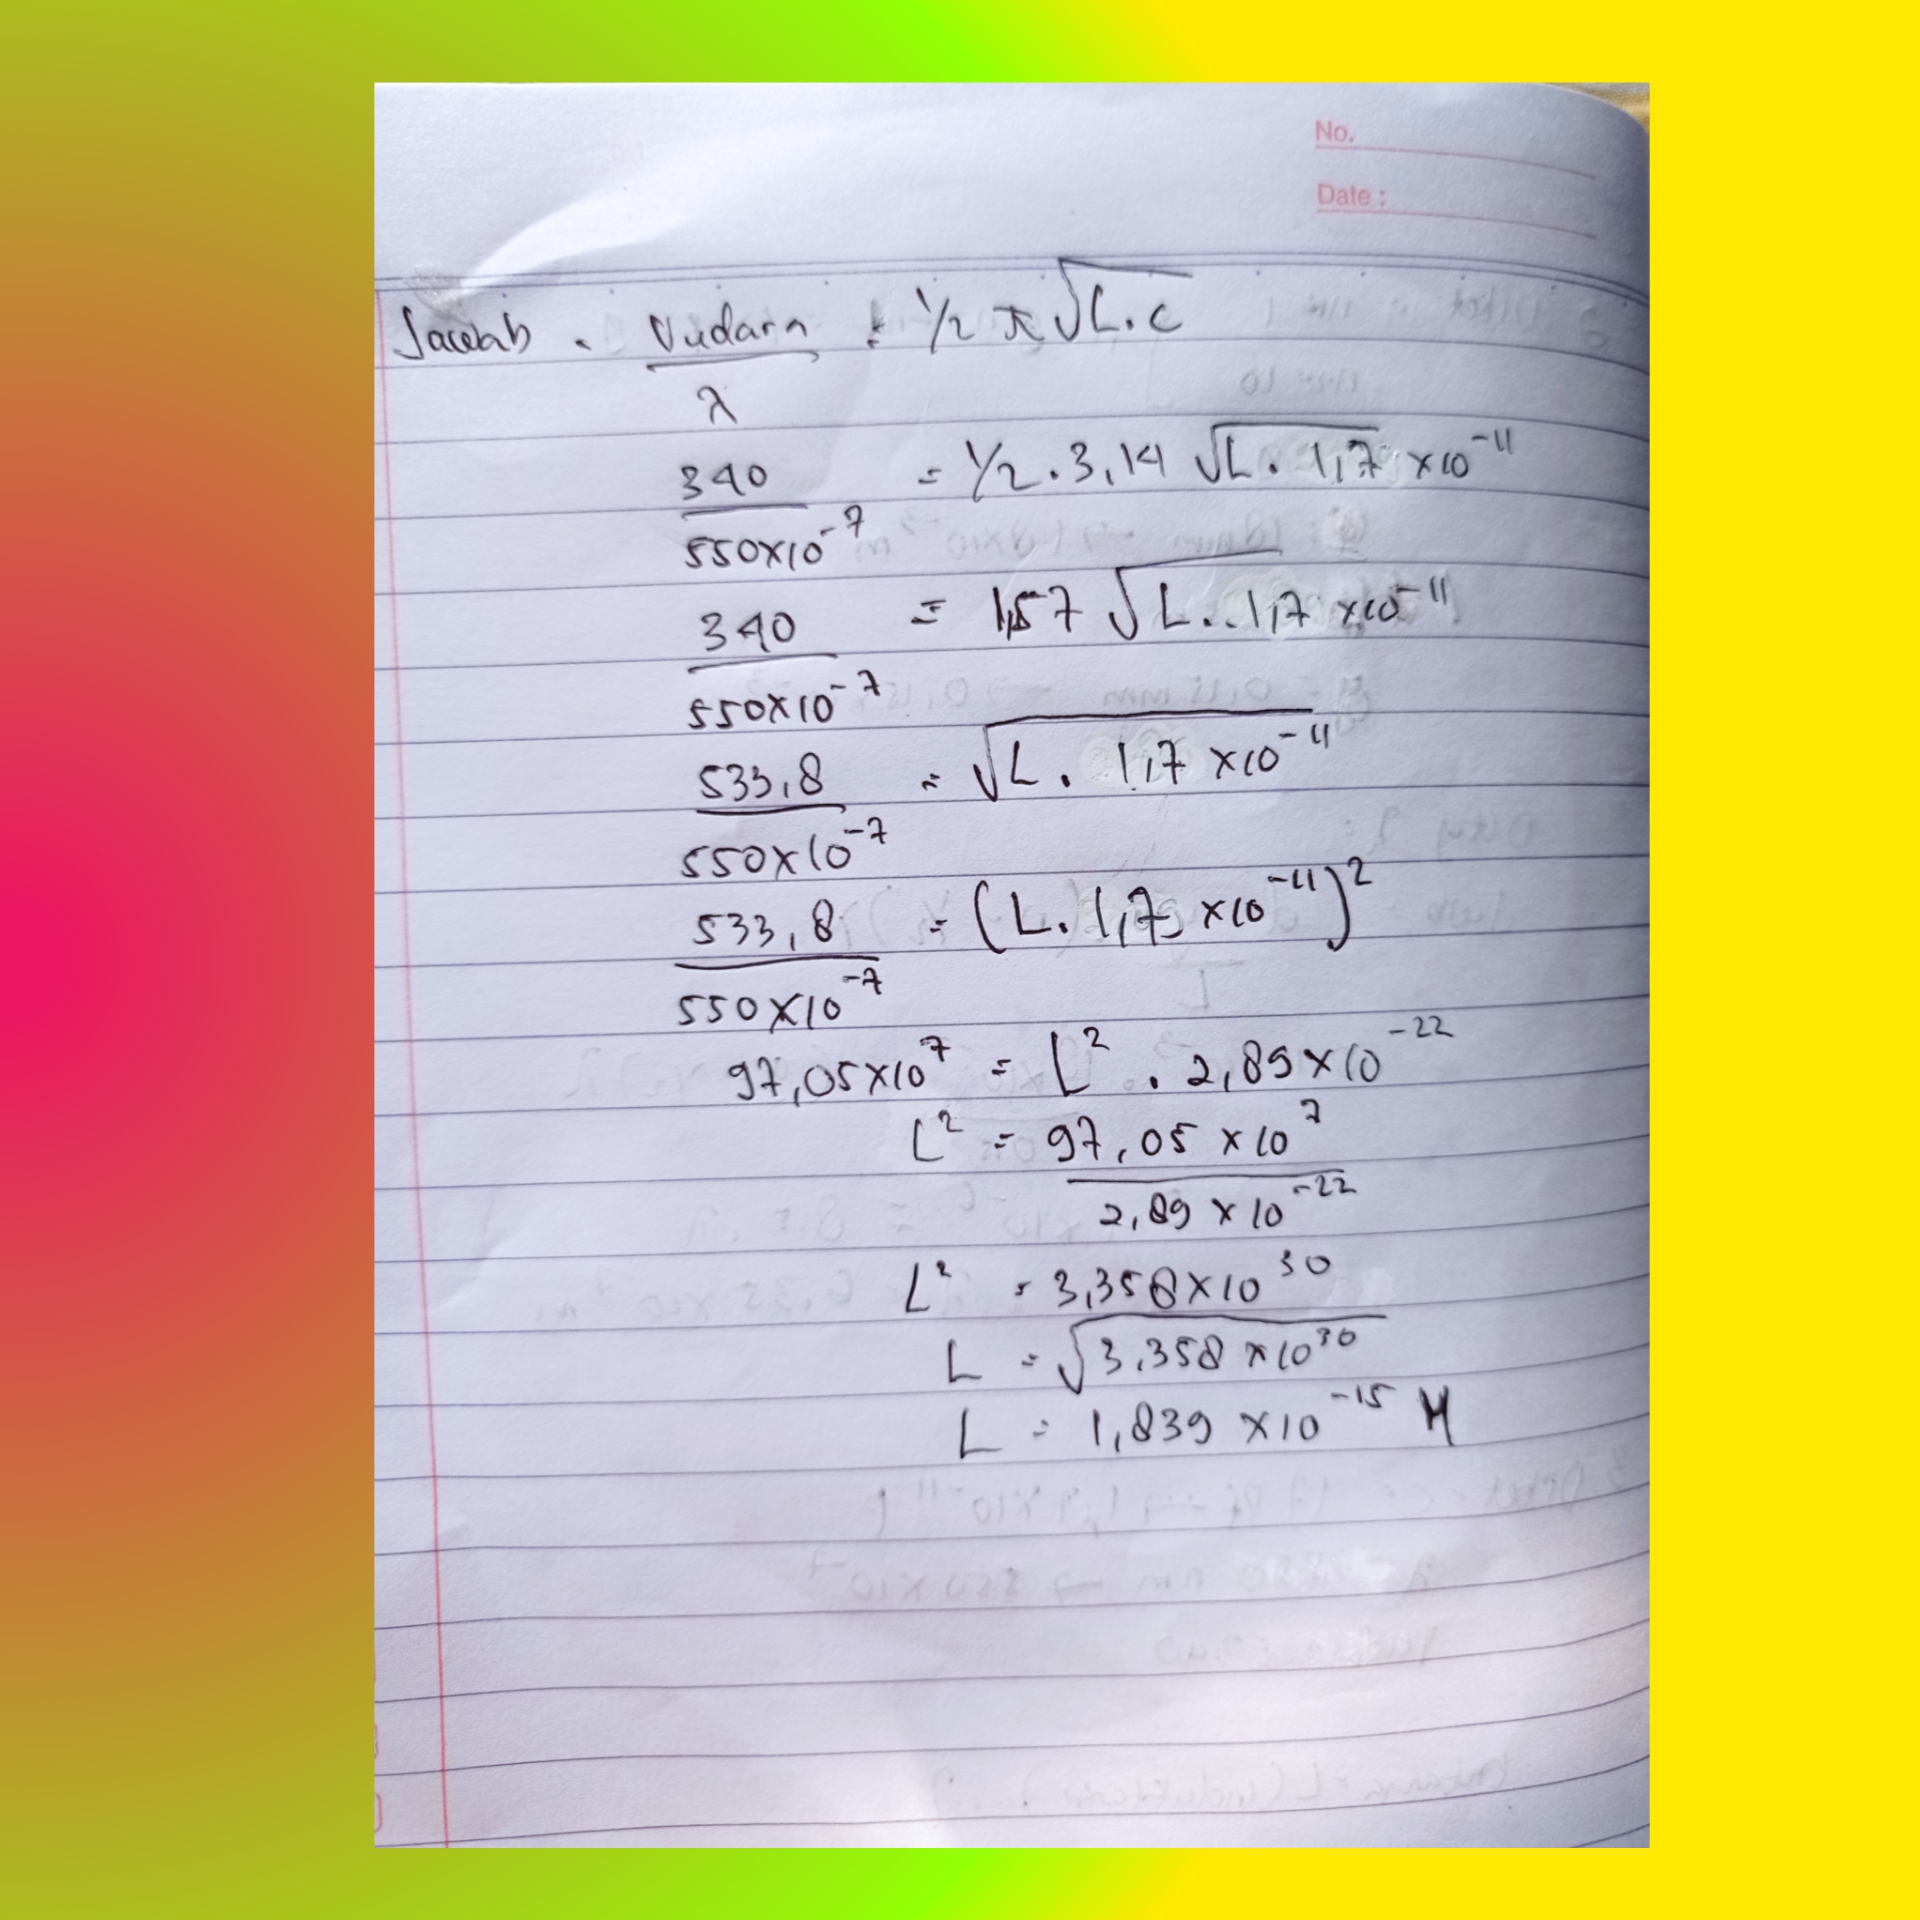 No.
Date :
Jawab . Vudara / λ = 1/2 π √L.C
340 / 550x10^-7 = 1/2 . 3,14 √L . 1,7 x10^-11
340 / 550x10^-7 = 1,57 √L . . 1,7 x10^-11
533,8 / 550x10^-7 = √L . 1,7 x10^-11
533,8 / 550x10^-7 = (L. 1,7 x10^-11)^2
97,05x10^7 = L^2 . 2,89x10^-22
L^2 = 97,05 x10^7 / 2,89 x10^-22
L^2 = 3,358x10^30
L = √3,358 x10^30
L = 1,839 x10^-15 H